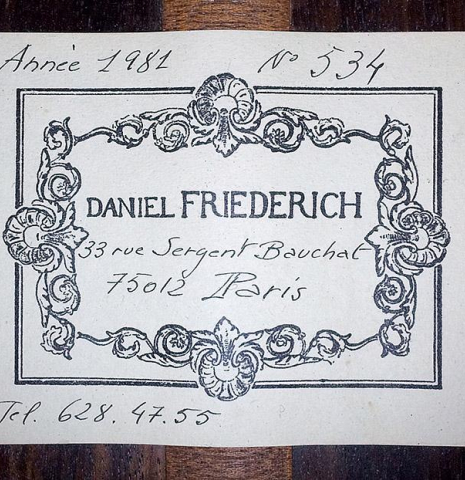 Année 1981 N° 534
DANIEL FRIEDERICH
33 rue Sergent Bauchat
75012 Paris
Tel. 628.47.55